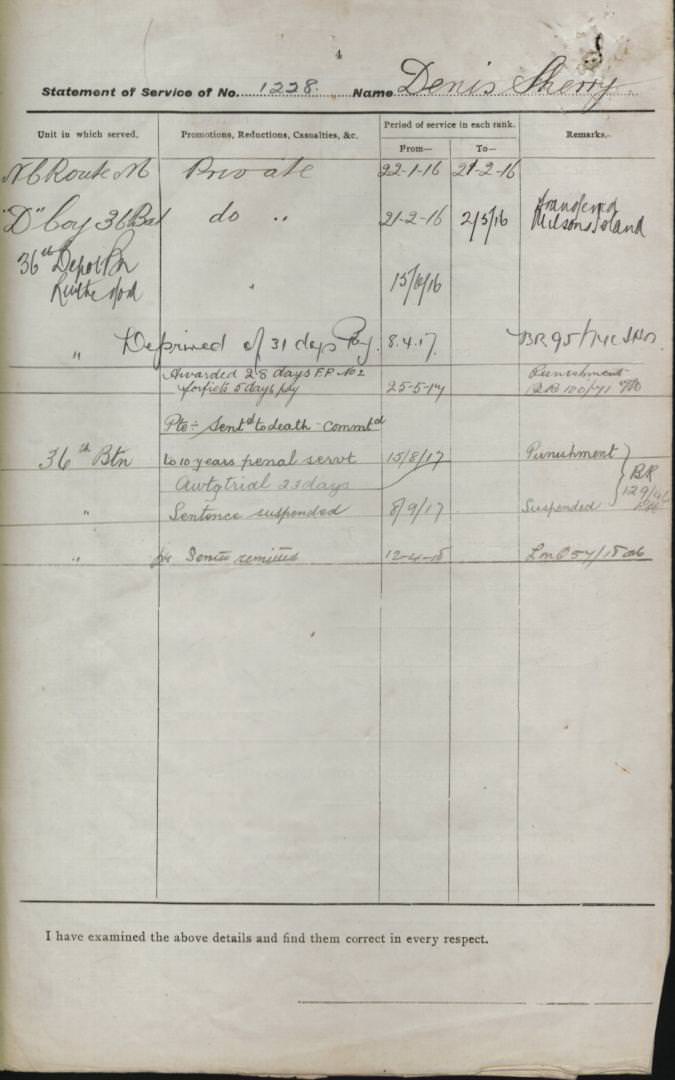 4
Statement of Service of No. 1228. Name Denis Sherry
Unit in which served. Promotions, Reductions, Casualties, &c. Period of service in each rank. Remarks.
From— To—
N C Route M Private 22-1-16 21-2-16
"D" Coy 36 Bat do " 21-2-16 2/5/16 Transferred
36th Depot Bn " 15/6/16
" Deprived of 31 days Pay. 8.4.17. BR 95/
Awarded 28 days F.P. No 2 Punishment
forfeits 5 days pay 25-5-17 100/71
Pte :- Sentd to death - Commtd
36th Btn to 10 years penal servt 15/8/17 Punishment
Awtg trial 23 days BR
" Sentence suspended 8/9/17 Suspended
" remitted 12-4-18
I have examined the above details and find them correct in every respect.